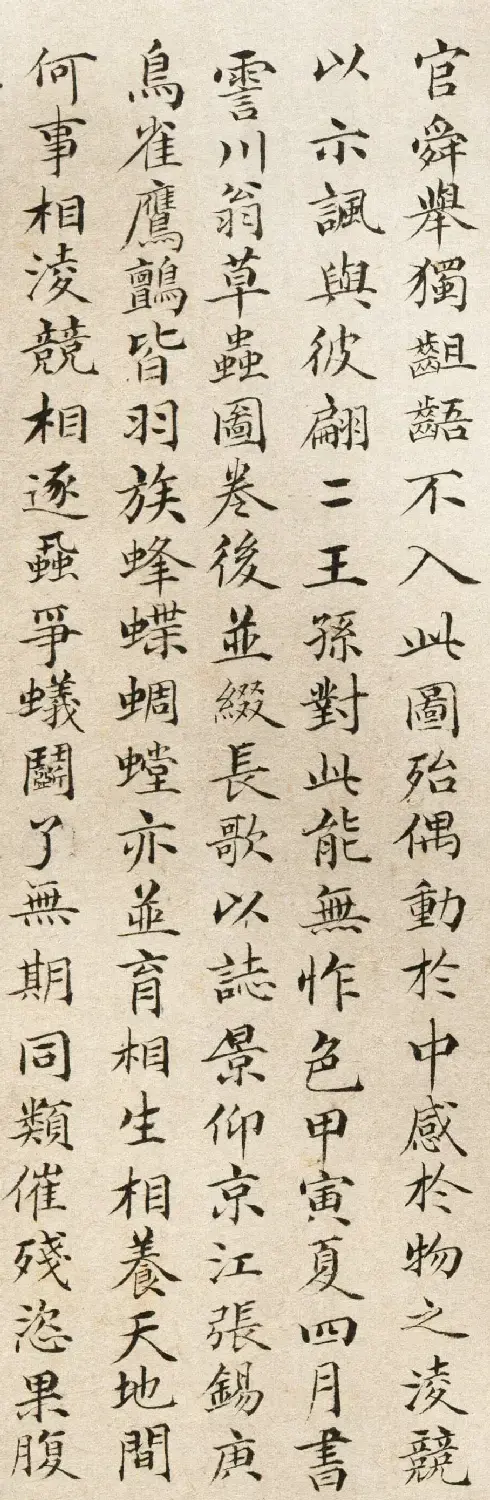 官舜舉獨齟齬不入此圖殆偶動於中感於物之淩競
以示諷與彼翩二王孫對此能無怍色甲寅夏四月書
霅川翁草蟲圖卷後並綴長歌以誌景仰京江張錫庚
鳥雀鷹鸇皆羽族蜂蝶蜩螳亦並育相生相養天地間
何事相淩競相逐蝨爭蟻鬭了無期同類催殘恣果腹